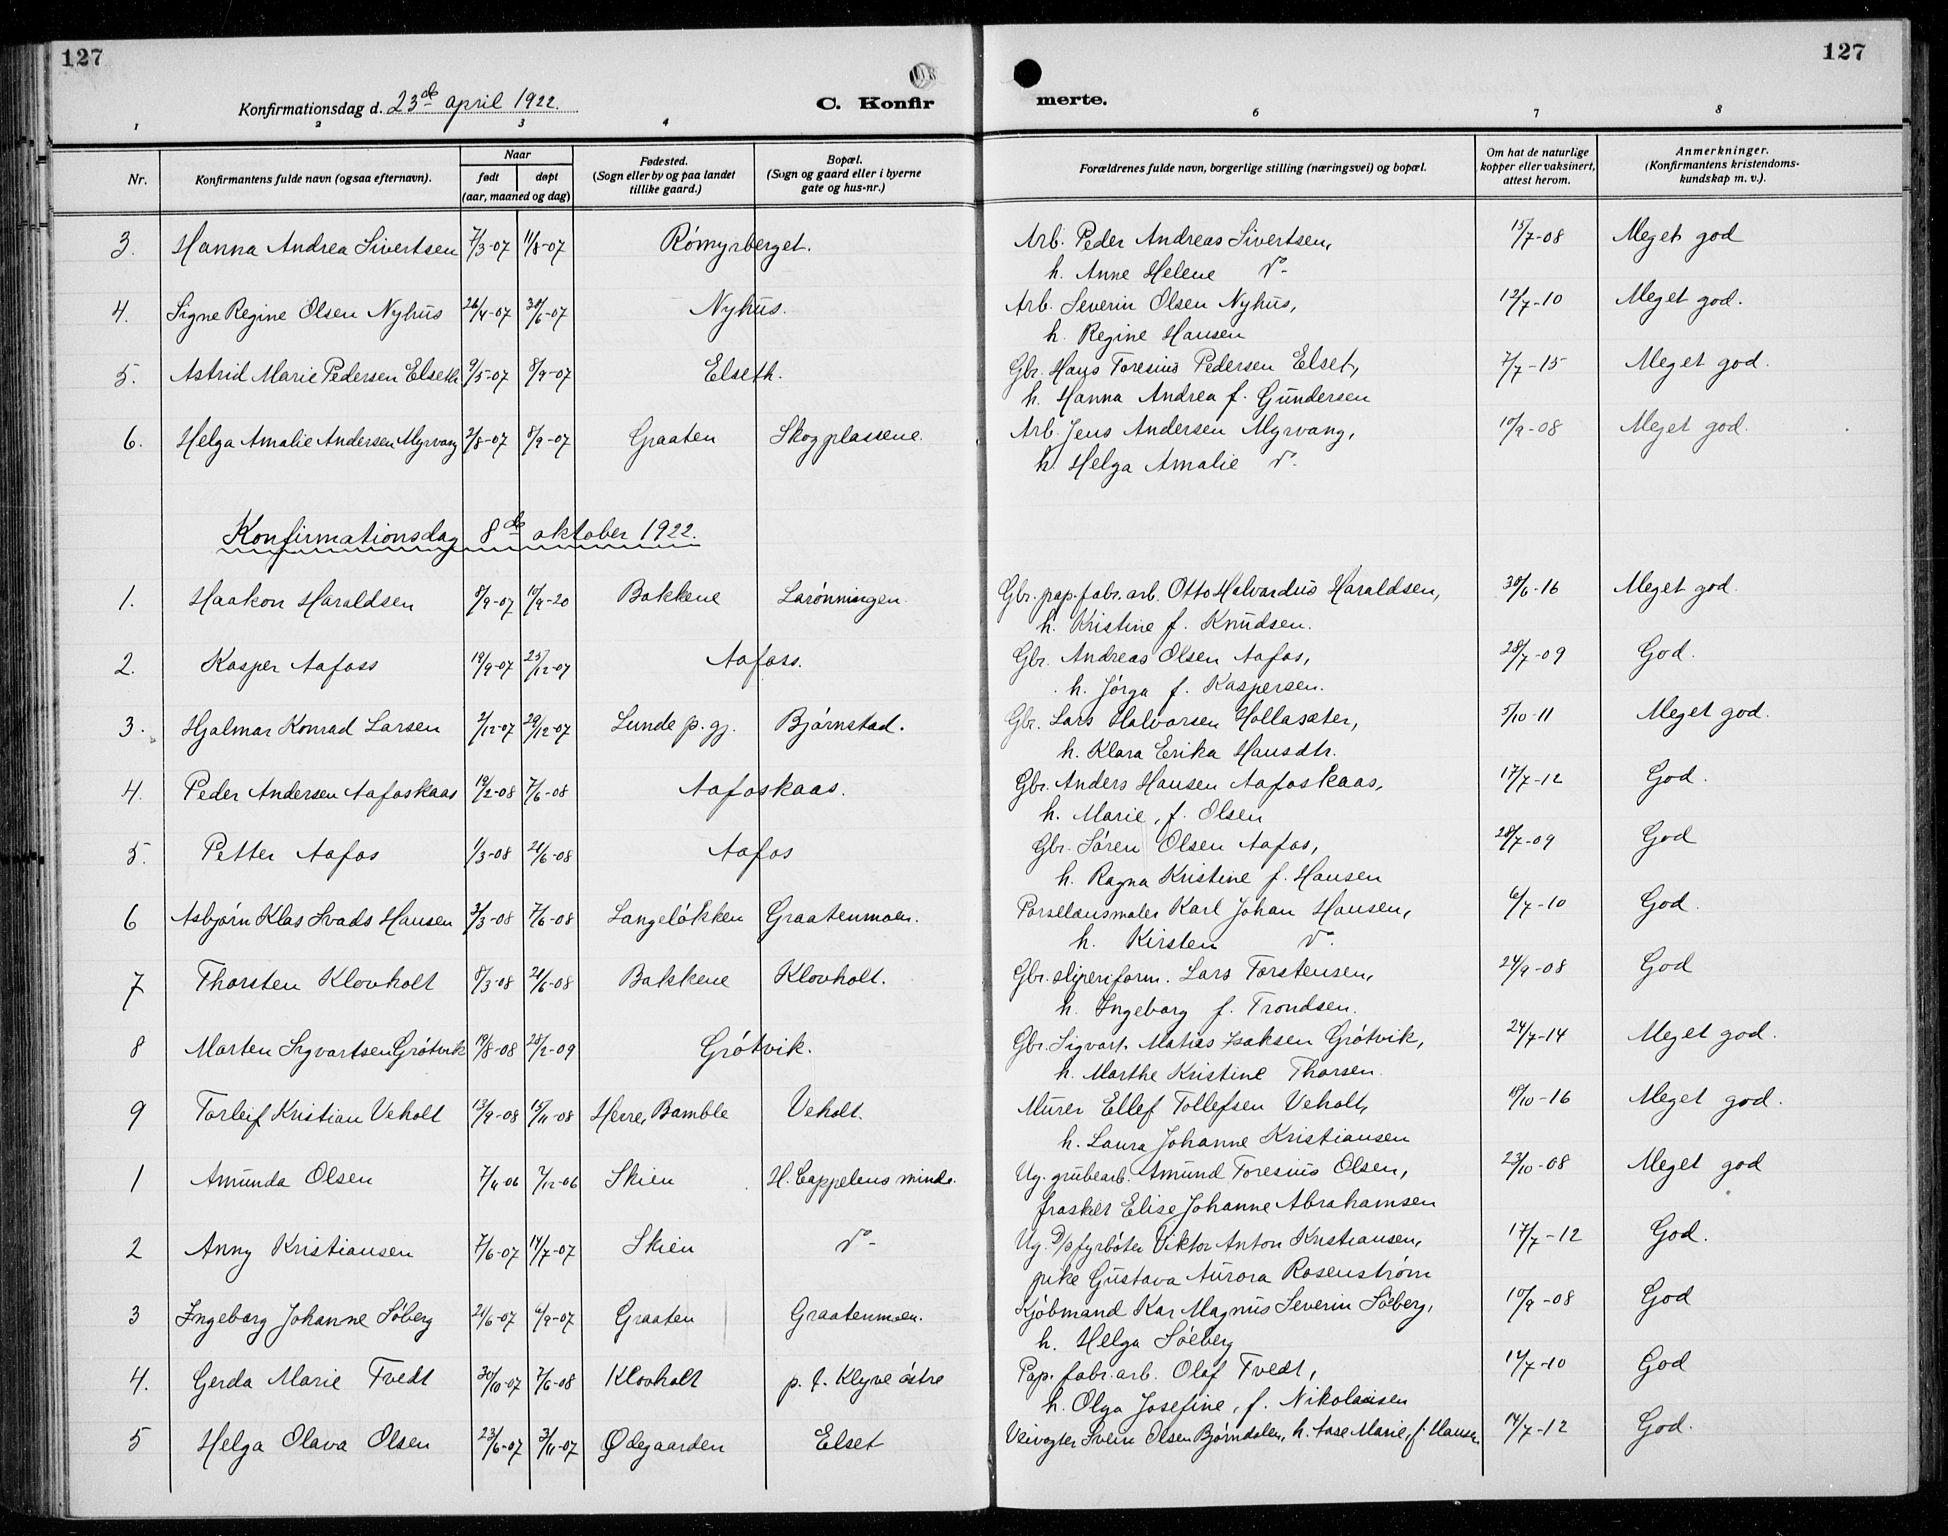 127
127
Konfirmationsdag d. 23de april 1922.
C. Konfirmerte.
1 2 3 4 6 7 8
Nr. Konfirmantens fulde navn (ogsaa efternavn). Naar født døpt (aar, maaned og dag) Fødested. (Sogn eller by og paa landet tillike gaard.) Bopæl. (Sogn og gaard eller i byerne gate og hus-nr.) Forældrenes fulde navn, borgerlige stilling (næringsvei) og bopæl. Om hat de naturlige kopper eller vaksinert, attest herom. Anmerkninger. (Konfirmantens kristendomskundskap m. v.).
3. Hanna Andrea Sivertsen 7/3-07 11/8-07 Römyrberget. Arb. Peder Andreas Sivertsen, 15/7-08 Meget god
h. Anne Helene do-
4. Signe Regine Olsen Nyhus 26/4-07 30/6-07 Nyhus. Arb. Severin Olsen Nyhus, 12/7-10 Meget god.
h. Regine Hansen
5. Astrid Marie Pedersen Elseth 9/5-07 8/9-07 Elseth. Gbr. Hans Toresius Pedersen Elset, 7/7-15 Meget god.
h. Hanna Andrea f. Gundersen
6. Helga Amalie Andersen Myrvang 2/8-07 8/9-07 Graaten Skogplassene. Arb. Jens Andersen Myrvang, 10/9-08 Meget god.
h. Helga Amalie do.
Konfirmationsdag 8de oktober 1922.
1. Haakon Haraldsen 9/9-07 10/9-20 Bakkene Larönningen. Gbr. pap. fabr. arb. Otto Halvardus Haraldsen, 30/6-16 Meget god.
h. Kristine f. Knudsen.
2. Kasper Aafoss 19/9-07 25/12-07 Aafoss. Gbr. Andreas Olsen Aafos, 28/7-09 God.
h. Jörga f. Kaspersen.
3. Hjalmar Konrad Larsen 2/12-07 29/12-07 Lunde p. gj. Björnstad. Gbr. Lars Halvorsen Hollasæter, 5/10-11 Meget god.
h. Klara Erika Hansdtr.
4. Peder Andersen Aafoskaas 19/2-08 7/6-08 Aafoskaas. Gbr. Anders Hansen Aafoskaas, 17/7-12 God.
h. Marie, f. Olsen
5. Petter Aafos 1/3-08 21/6-08 Aafos Gbr. Sören Olsen Aafos, 28/7-09 God
h. Ragna Kristine f. Hansen
6 Asbjørn Klas Svads Hansen 3/3-08 7/6-08 Langelökken Graatenmoen. Porselænsmaler Karl Johan Hansen, 6/7-10 God.
h. Kirsten do.
7 Thorsten Klovholt 8/3-08 21/6-08 Bakkene Klovholt. Gbr. sliperiform. Lars Torstensen, 24/9-08 God
h. Ingeborg f. Trondsen.
8 Marten Sigvartsen Grötvik 19/8-08 28/2-09 Grötvik. Gbr. Sigvart Matias Isaksen Grötvik, 24/7-14 Meget god.
h. Marthe Kristine Thorsen.
9 Torleif Kristian Veholt 13/9-08 15/11-08 Herre, Bamble Veholt. Murer Ellef Tollefsen Veholt, 18/10-16 Meget god.
h. Laura Johanne Kristiansen
1 Amunda Olsen 7/4-06 7/12-06 Skien H. Cappelens minde. Ug. grubearb. Amund Toresius Olsen, 23/10-08 Meget god
fraskilt Elise Johanne Abrahamsen
2 Anny Kristiansen 7/6-07 14/7-07 Skien do- Ug. D/p fyrböter Viktor Anton Kristiansen, 17/7-12 God.
pike Gustava Aurora Rosenström
3 Ingeborg Johanne Söberg 21/6-07 4/9-07 Graaten Graatenmoen. Kjöbmand Kar Magnus Severin Söeberg, 10/9-08 God
h. Helga Söeberg
4. Gerda Marie Tvedt 30/10-07 7/6-08 Klovholt p. t. Klyve östre Pap. fabr. arb. Olaf Tvedt, 14/7-10 God
h. Olga Josefine, f. Nikolaisen
5 Helga Olava Olsen 23/6-07 3/11-07 Ødegaarden Elset Veivogter Svein Olsen Björndalen, h. Aase Marie, f. Hansen 14/7-12 God.